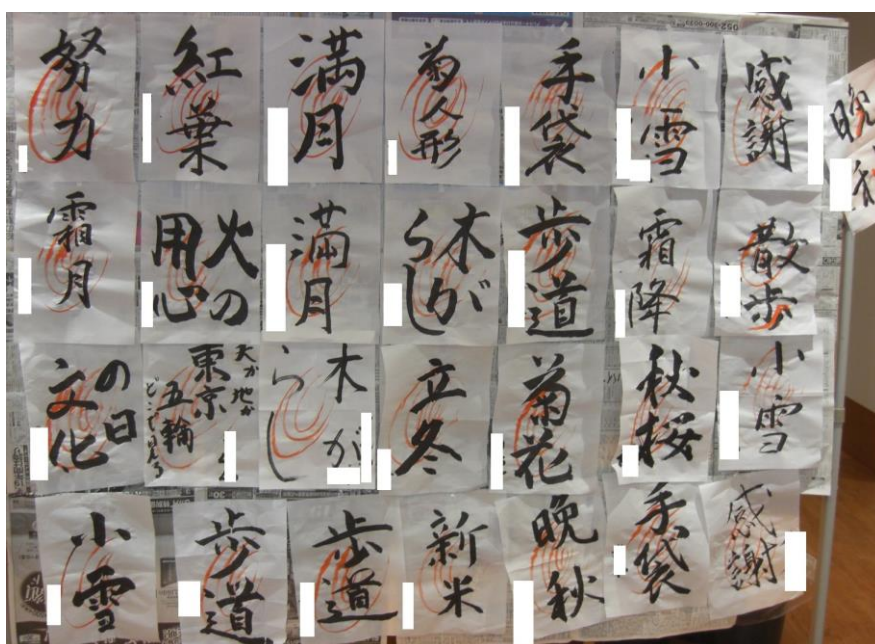 努力
紅葉
満月
菊人形
手袋
小雪
感謝
晩
霜月
火の
用心
満月
木が
らし
歩道
霜降
散歩
の日
文化
天か地か
東京
五輪
木が
らし
立冬
菊花
秋桜
小雪
小雪
歩道
歩道
新米
晩秋
手袋
感謝